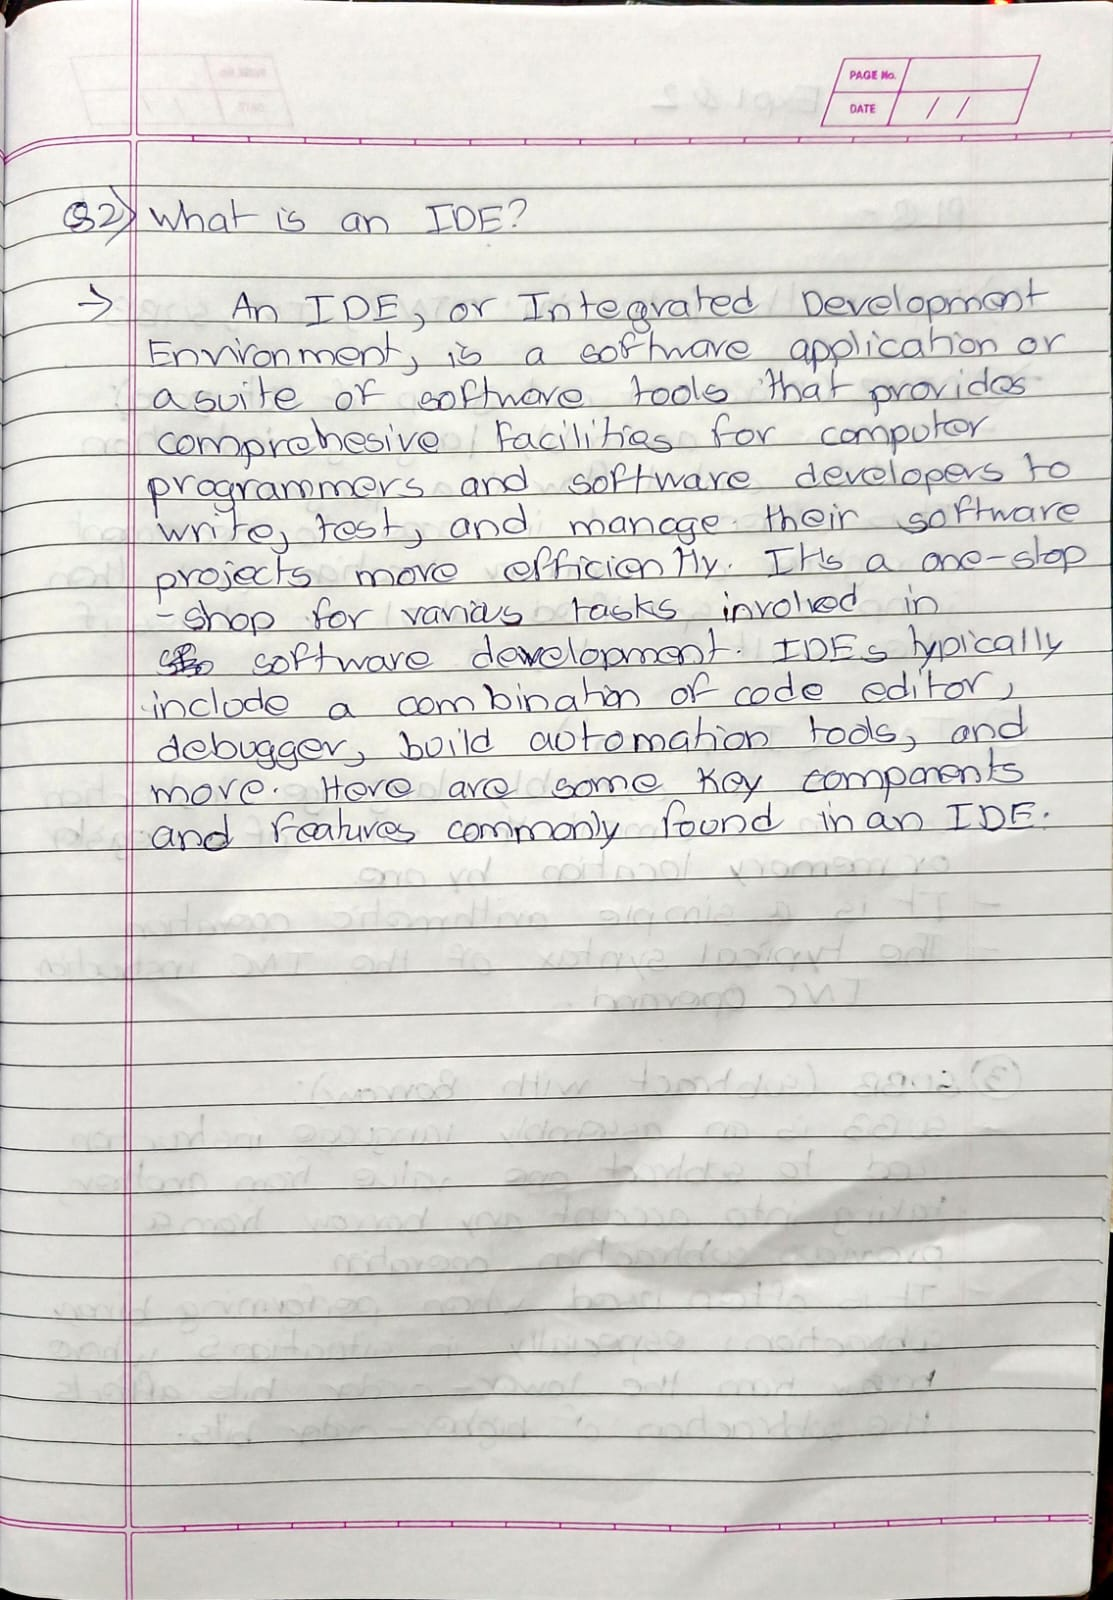 PAGE No.
DATE / /
Q2) What is an IDE?
→ An IDE, or Integrated Development
Environment, is a software application or
a suite of software tools that provides
comprehesive facilities for computer
programmers and software developers to
write, test, and manage their software
projects more efficiently. It's a one-stop
-shop for various tasks involved in
software development. IDEs typically
include a combination of code editor,
debugger, build automation tools, and
more. Here are some key components
and features commonly found in an IDE.